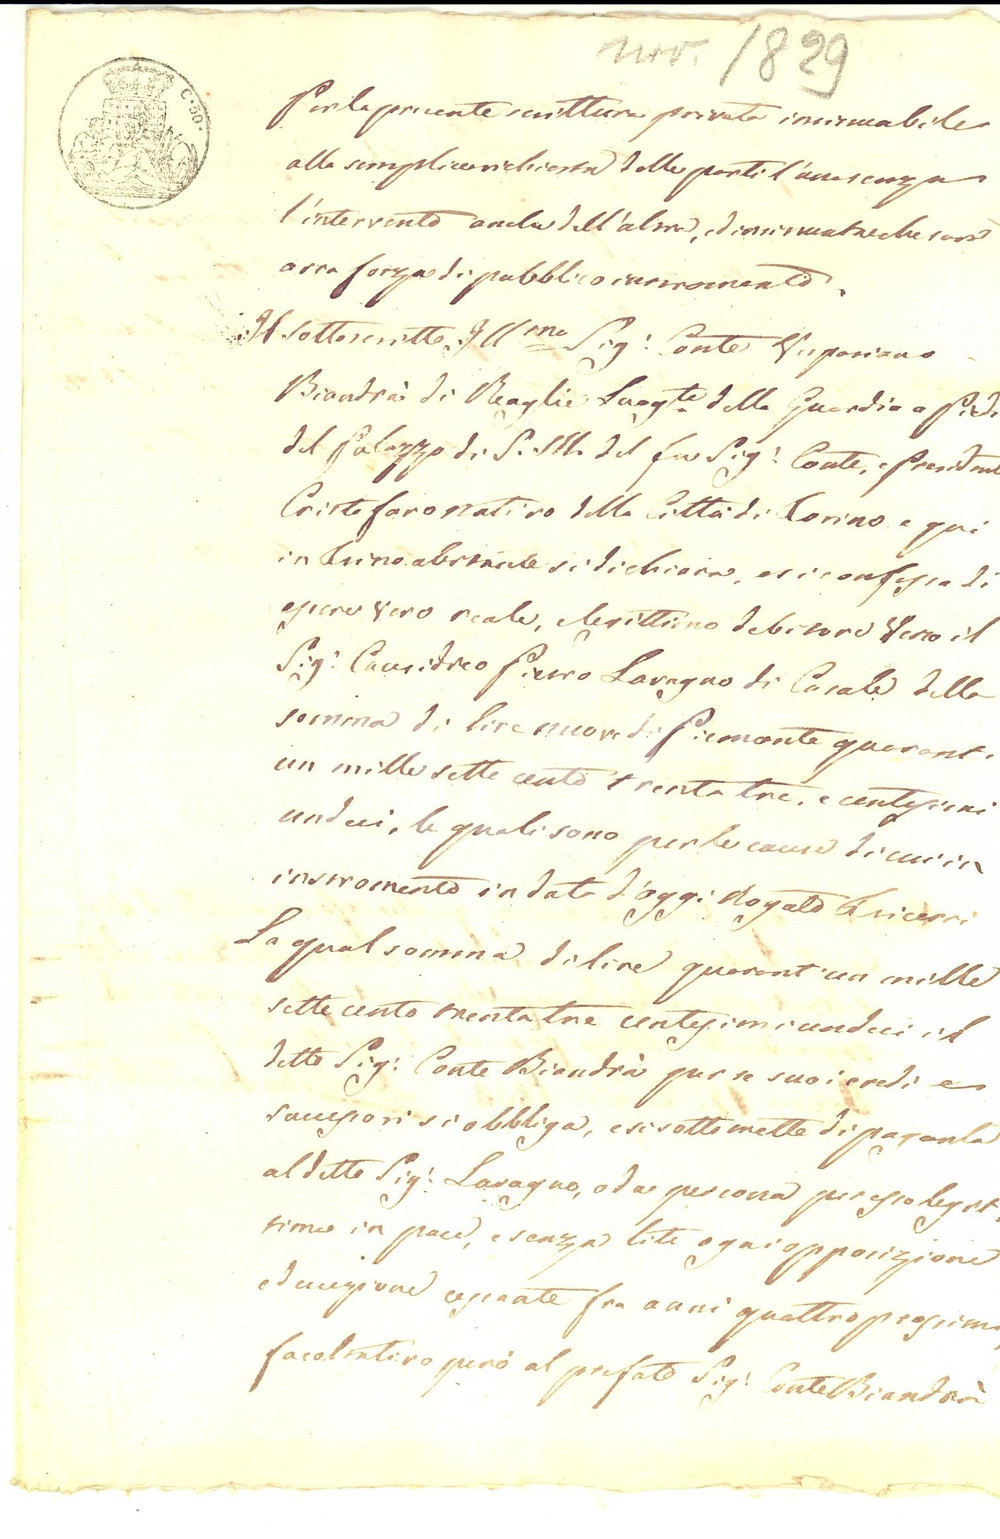 nov. 1829
C. 50.
Per la presente scrittura privata insinuabile
alla semplice richiesta delle parti l'una senza
l'intervento anche dell'altra, ed insinuata che sarà
avrà forza di pubblico instromento.
Il sottoscritto Ill.mo Sig.r Conte Vespasiano
Biandrà di Reaglie Luogte. della Guardia a Piedi
del Palazzo di S. M. del fu Sig.r Conte, e President
Cristoforo nativo della Città di Torino e qui
in Trino abitante si dichiara, e si confessa di
essere vero reale, e legittimo debitore verso il
Sig.r Causidico Pietro Lavagno di Casale della
somma di lire nuove di Piemonte quarant'
un mille sette cento trenta tre, e centesimi
undeci, le quali sono per le cause di cui in
instromento in data d'oggi rogato
La qual somma di lire quarant'un mille
sette cento trenta tre centesimi undeci il
detto Sig.r Conte Biandrà per se suoi eredi e
successori si obbliga, e si sottomette di pagarla
al detto Sig.r Lavagno, od a persona per esso legit-
tima in pace, e senza lite ogni opposizione
ed eccezione cessante fra anni quattro prossimi,
facoltativo però al prefato Sig.r Conte Biandrà